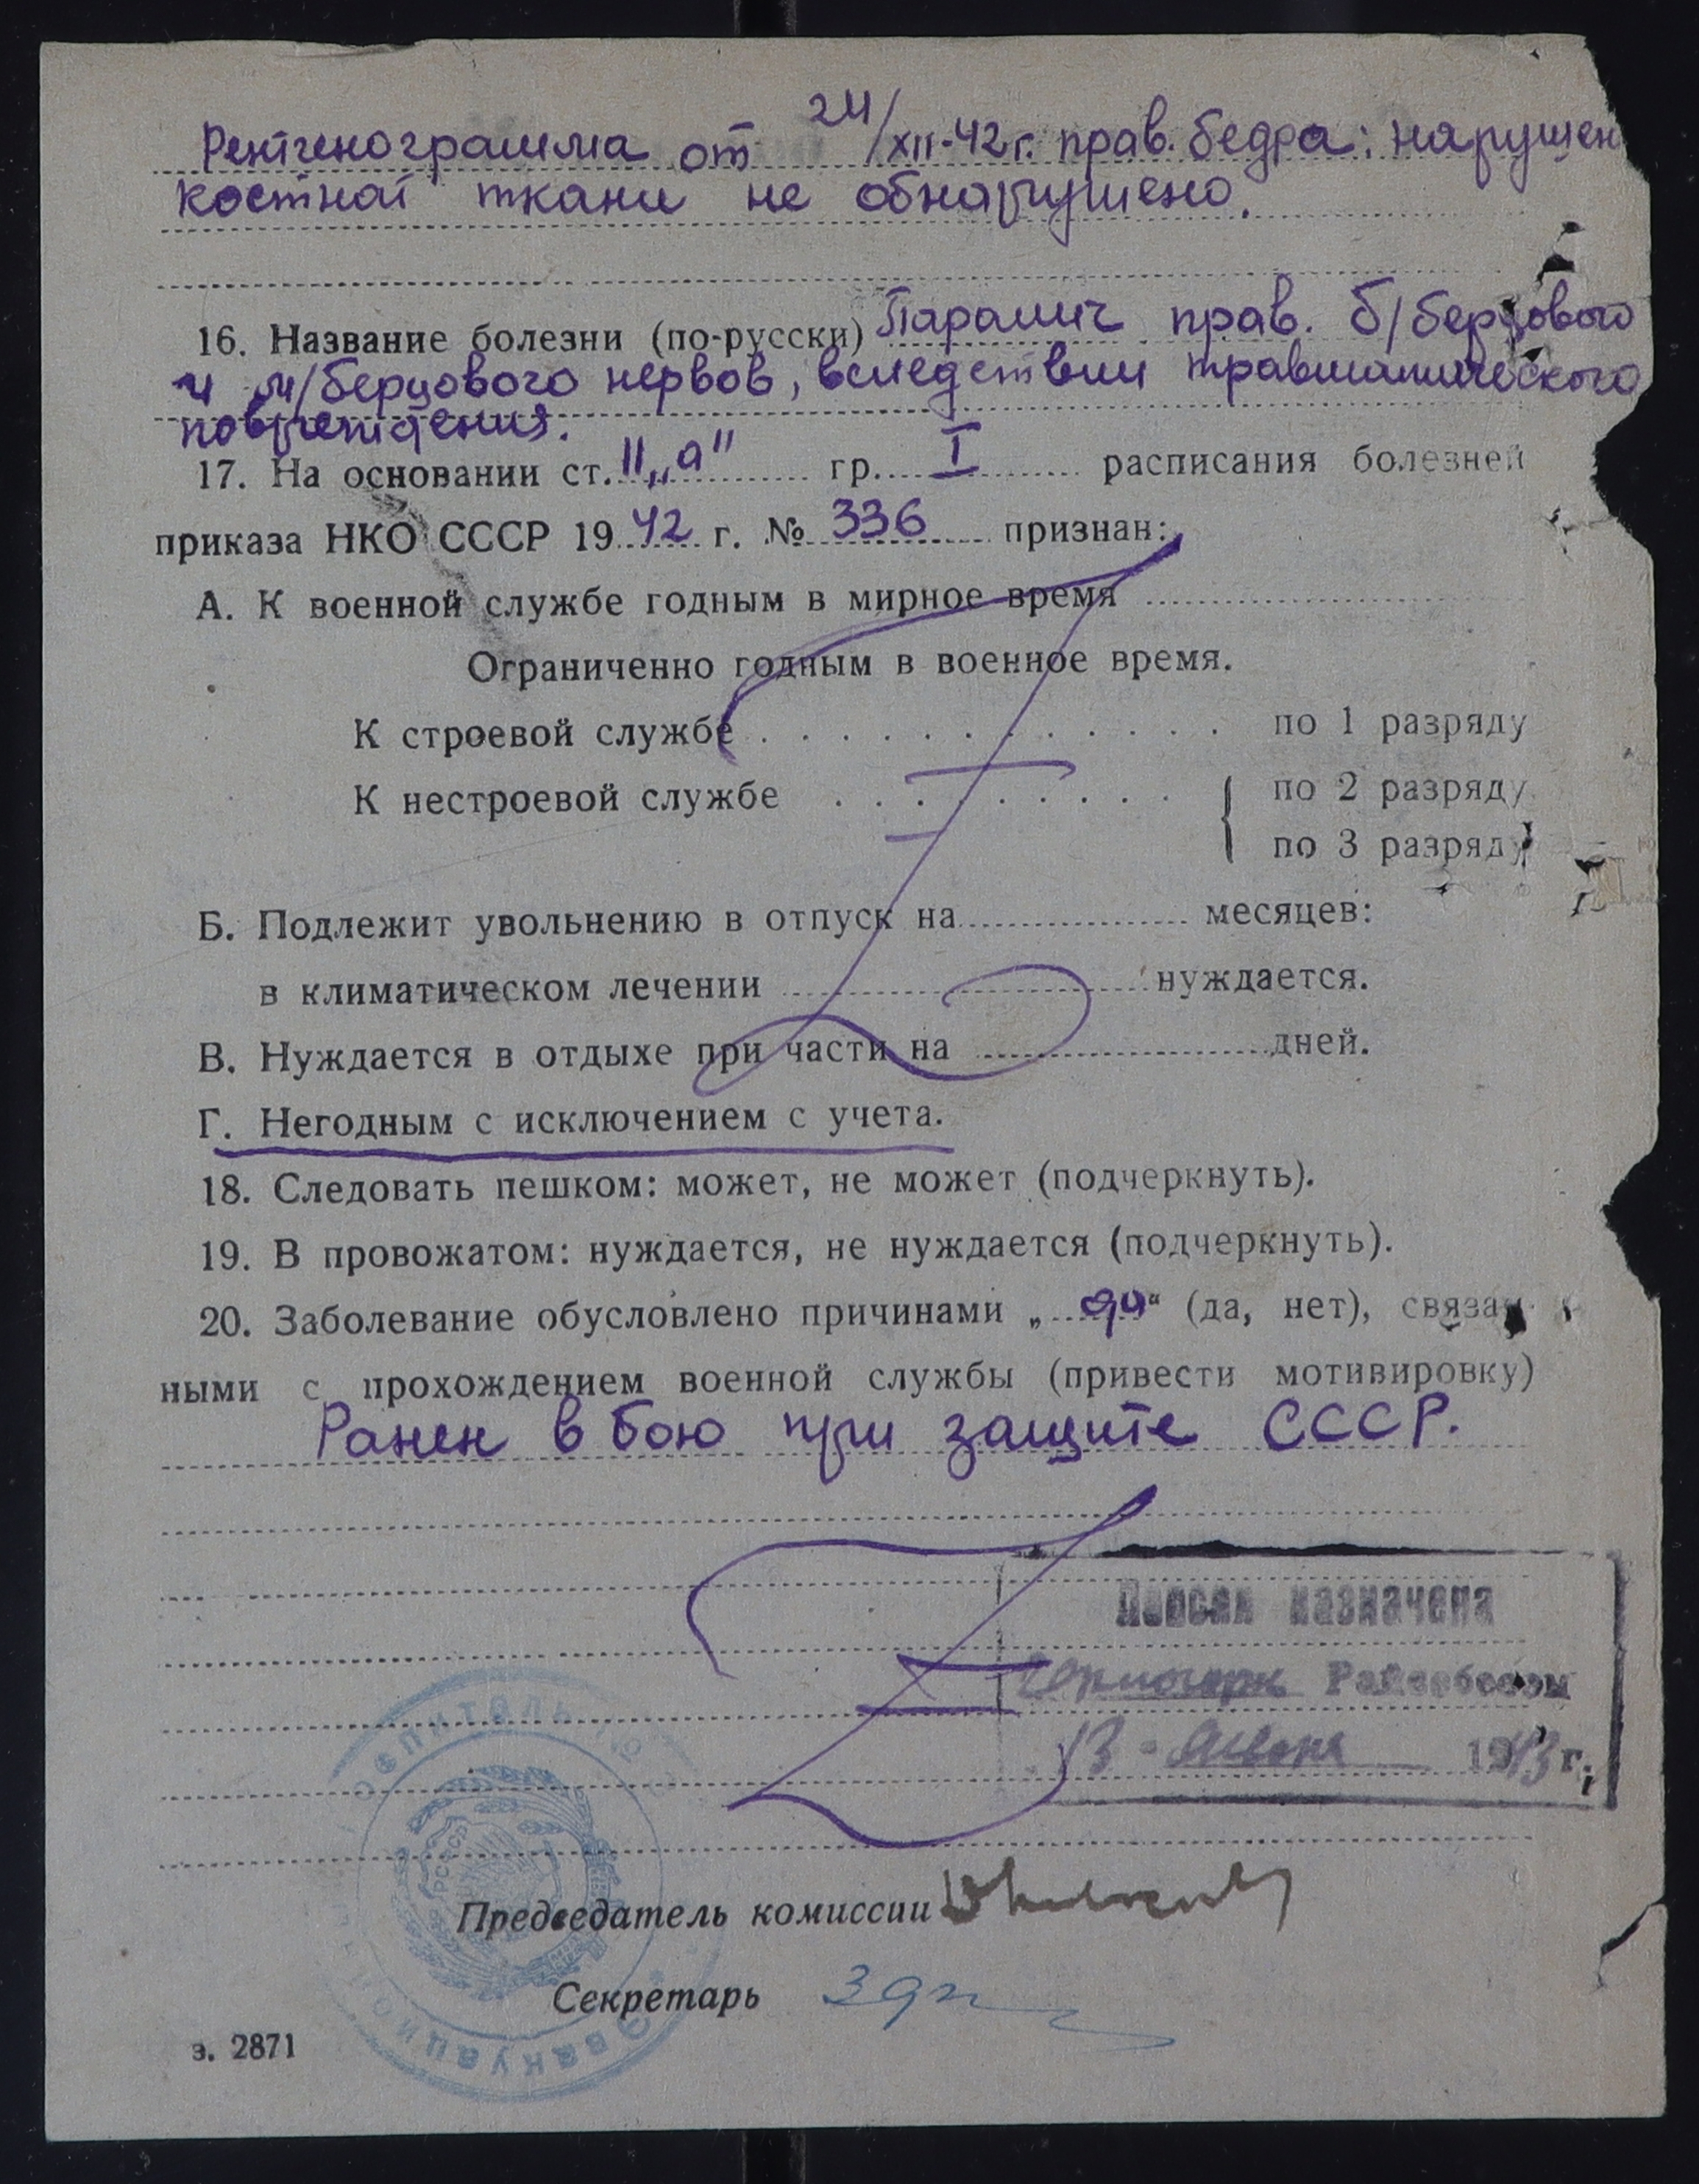 Рентгенограмма от 24/XII-42 г. прав. бедра: нарушен
костной ткани не обнарушено.
16. Название болезни (по-русски) Паралич прав. б/берцового
и м/берцового нервов, вследствии травматического
повреждения.
17. На основании ст. 11 „а" гр. I расписания болезней
приказа НКО СССР 1942 г. № 336 признан:
А. К военной службе годным в мирное время
Ограниченно годным в военное время.
К строевой службе по 1 разряду
К нестроевой службе { по 2 разряду
по 3 разряду
Б. Подлежит увольнению в отпуск на месяцев:
в климатическом лечении нуждается.
В. Нуждается в отдыхе при части на дней.
Г. Негодным с исключением с учета.
18. Следовать пешком: может, не может (подчеркнуть).
19. В провожатом: нуждается, не нуждается (подчеркнуть).
20. Заболевание обусловлено причинами „да“ (да, нет), связан-
ными с прохождением военной службы (привести мотивировку)
Ранен в бою при защите СССР.
назначена
Райсобесом
13 1943 г.
Председатель комиссии
Секретарь
з. 2871
госпиталь
Эвакуацион
РСФСР